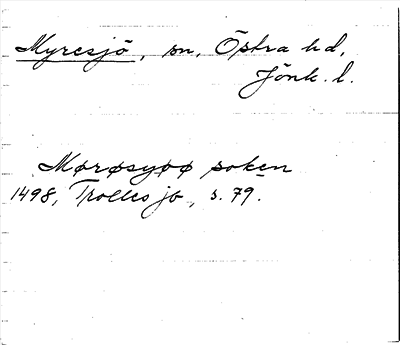 Myresjö, sn, Östra hd,
Jönk. l.
Mørøsyøø soken
1498, Trolles jb, s. 79.